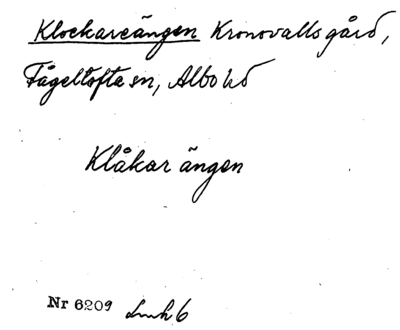 Klockareängen Kronovalls gård,
Fågeltofta sn, Albo hd
Klåkar ängen
Nr 6209 Lmh 6